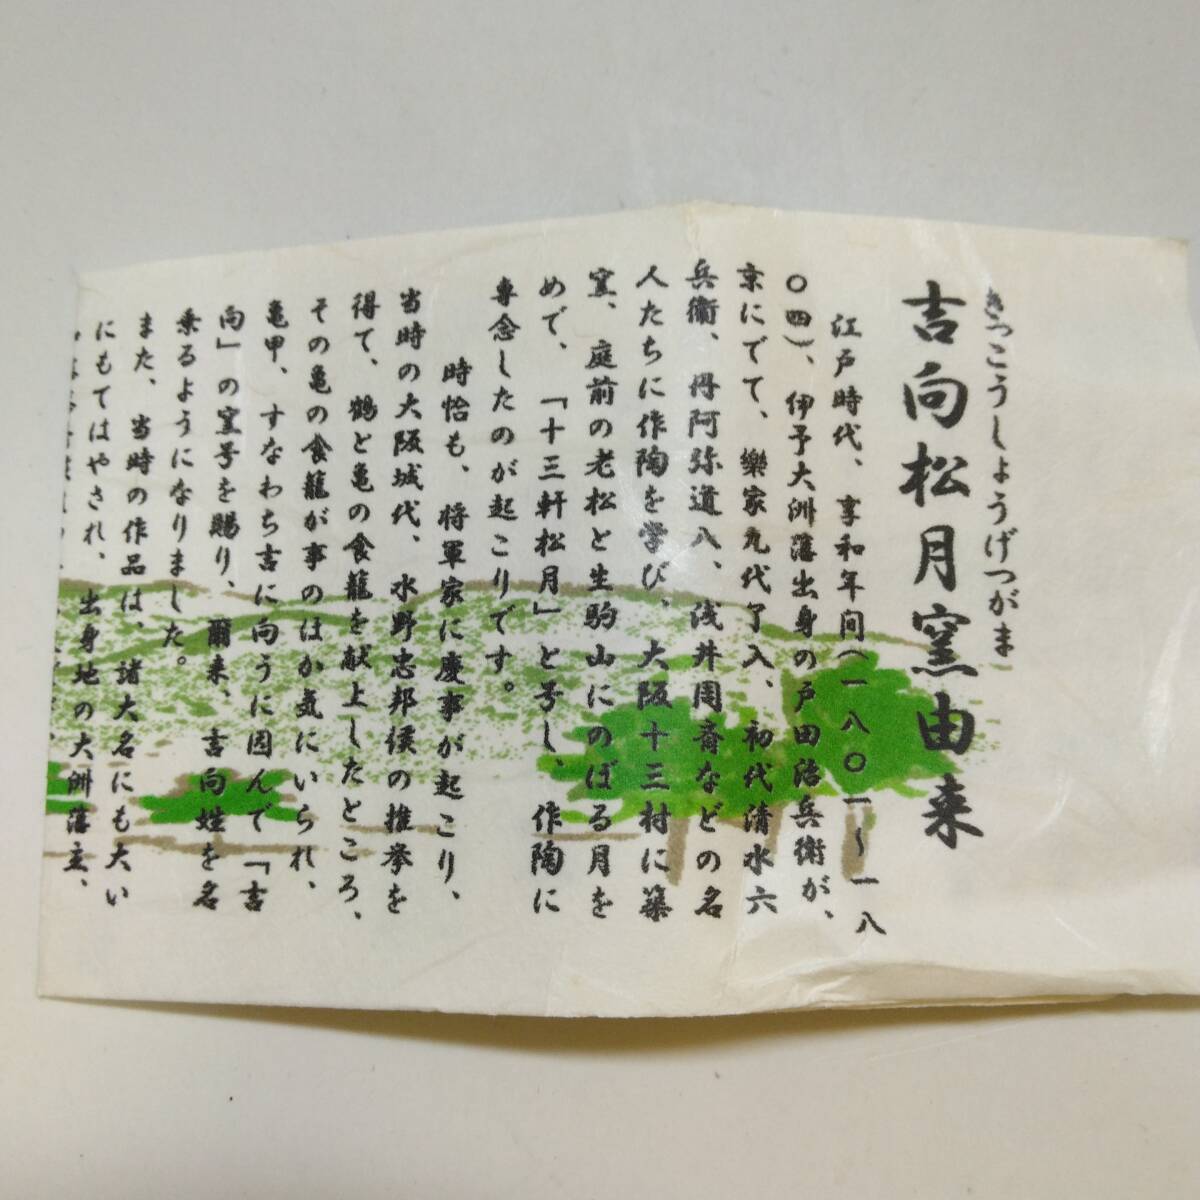 きっこうしょうげつがま
吉向松月窯由来
江戸時代、享和年間(一八〇一〜一八
〇四)、伊予大洲藩出身の戸田治兵衛が、
京にでて、樂家九代了入、初代清水六
兵衛、丹阿弥道八、浅井周斎などの名
人たちに作陶を学び、大阪十三村に築
窯、庭前の老松と生駒山にのぼる月を
めで、「十三軒松月」と号し、作陶に
専念したのが起こりです。
時恰も、将軍家に慶事が起こり、
当時の大阪城代、水野忠邦侯の推挙を
得て、鶴と亀の食籠を献上したところ、
その亀の食籠が事のほか気にいられ、
亀甲、すなわち吉に向うに因んで「吉
向」の窯号を賜り、爾来、吉向姓を名
乗るようになりました。
また、当時の作品は、諸大名にも大い
にもてはやされ、出身地の大洲藩主、